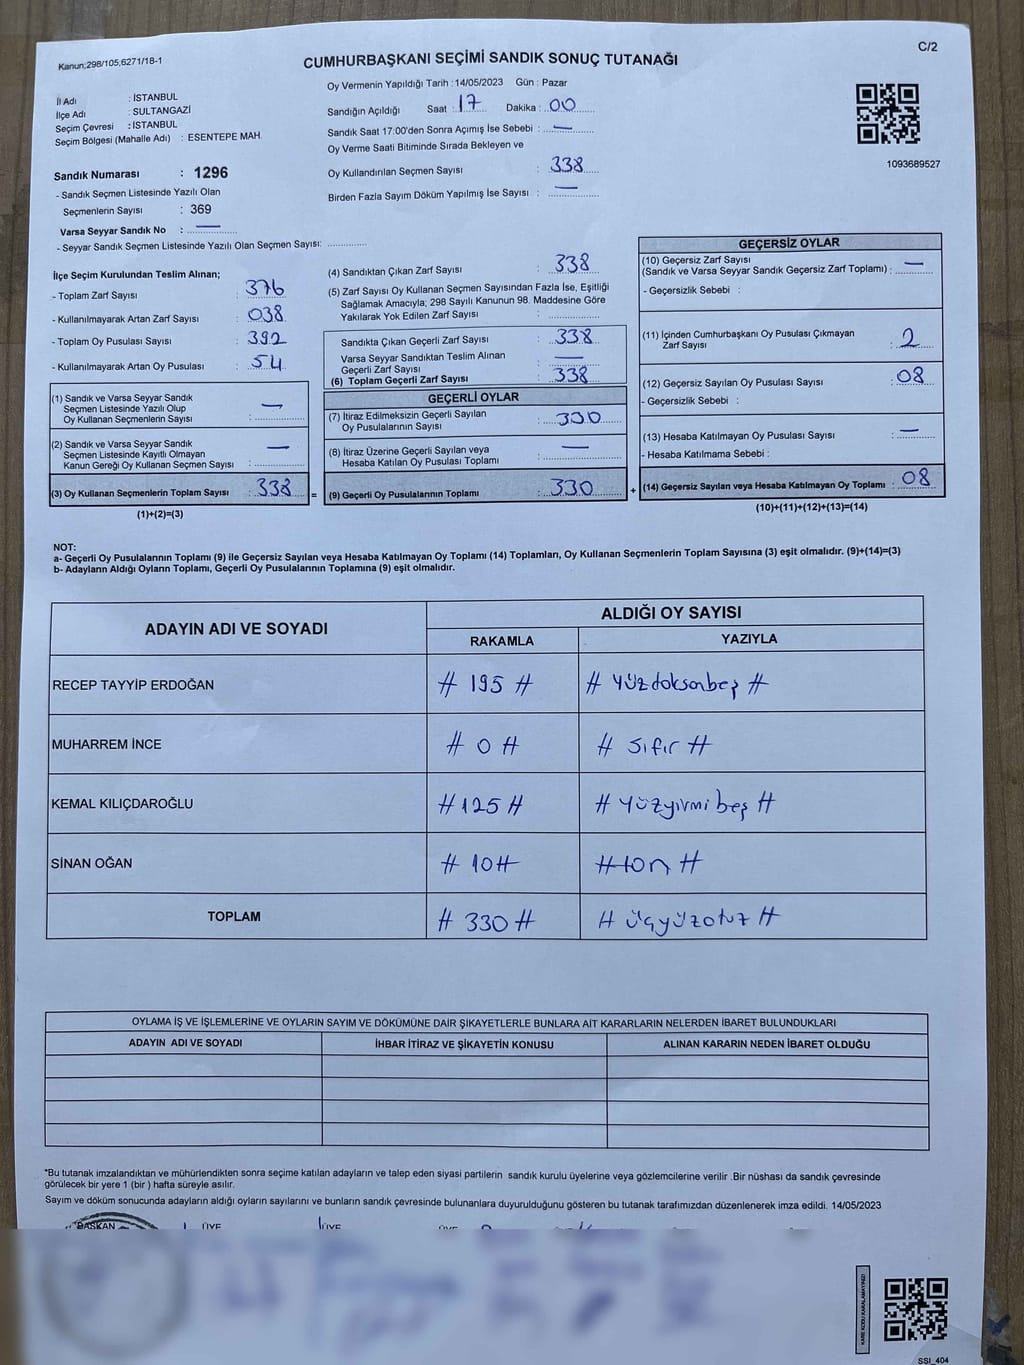 C/2
Kanun;298/105,6271/18-1
CUMHURBAŞKANI SEÇİMİ SANDIK SONUÇ TUTANAĞI
İl Adı : İSTANBUL
İlçe Adı : SULTANGAZİ
Seçim Çevresi : İSTANBUL
Seçim Bölgesi (Mahalle Adı) : ESENTEPE MAH.
Sandık Numarası : 1296
- Sandık Seçmen Listesinde Yazılı Olan
Seçmenlerin Sayısı : 369
Varsa Seyyar Sandık No : —
- Seyyar Sandık Seçmen Listesinde Yazılı Olan Seçmen Sayısı: ............
Oy Vermenin Yapıldığı Tarih : 14/05/2023 Gün : Pazar
Sandığın Açıldığı Saat : 17 Dakika : 00
Sandık Saat 17:00'den Sonra Açımış İse Sebebi : —
Oy Verme Saati Bitiminde Sırada Bekleyen ve
Oy Kullandırılan Seçmen Sayısı : 338
Birden Fazla Sayım Döküm Yapılmış İse Sayısı : —
1093689527
İlçe Seçim Kurulundan Teslim Alınan;
- Toplam Zarf Sayısı : 376
- Kullanılmayarak Artan Zarf Sayısı : 038
- Toplam Oy Pusulası Sayısı : 392
- Kullanılmayarak Artan Oy Pusulası : 54
(1) Sandık ve Varsa Seyyar Sandık
Seçmen Listesinde Yazılı Olup
Oy Kullanan Seçmenlerin Sayısı : —
(2) Sandık ve Varsa Seyyar Sandık
Seçmen Listesinde Kayıtlı Olmayan
Kanun Gereği Oy Kullanan Seçmen Sayısı : —
(3) Oy Kullanan Seçmenlerin Toplam Sayısı : 338 =
(1)+(2)=(3)
(4) Sandıktan Çıkan Zarf Sayısı : 338
(5) Zarf Sayısı Oy Kullanan Seçmen Sayısından Fazla İse, Eşitliği
Sağlamak Amacıyla; 298 Sayılı Kanunun 98. Maddesine Göre
Yakılarak Yok Edilen Zarf Sayısı : ............
Sandıkta Çıkan Geçerli Zarf Sayısı : 338
Varsa Seyyar Sandıktan Teslim Alınan
Geçerli Zarf Sayısı : —
(6) Toplam Geçerli Zarf Sayısı : 338
GEÇERLİ OYLAR
(7) İtiraz Edilmeksizin Geçerli Sayılan
Oy Pusulalarının Sayısı : 330
(8) İtiraz Üzerine Geçerli Sayılan veya
Hesaba Katılan Oy Pusulası Toplamı : —
(9) Geçerli Oy Pusulalarının Toplamı : 330 +
GEÇERSİZ OYLAR
(10) Geçersiz Zarf Sayısı
(Sandık ve Varsa Seyyar Sandık Geçersiz Zarf Toplamı) : —
- Geçersizlik Sebebi :
(11) İçinden Cumhurbaşkanı Oy Pusulası Çıkmayan
Zarf Sayısı : 2
(12) Geçersiz Sayılan Oy Pusulası Sayısı : 08
- Geçersizlik Sebebi :
(13) Hesaba Katılmayan Oy Pusulası Sayısı : —
- Hesaba Katılmama Sebebi :
(14) Geçersiz Sayılan veya Hesaba Katılmayan Oy Toplamı : 08
(10)+(11)+(12)+(13)=(14)
NOT:
a- Geçerli Oy Pusulalarının Toplamı (9) ile Geçersiz Sayılan veya Hesaba Katılmayan Oy Toplamı (14) Toplamları, Oy Kullanan Seçmenlerin Toplam Sayısına (3) eşit olmalıdır. (9)+(14)=(3)
b- Adayların Aldığı Oyların Toplamı, Geçerli Oy Pusulalarının Toplamına (9) eşit olmalıdır.
ADAYIN ADI VE SOYADI
ALDIĞI OY SAYISI
RAKAMLA YAZIYLA
RECEP TAYYİP ERDOĞAN # 195 # # Yüzdoksanbeş #
MUHARREM İNCE # 0 # # Sıfır #
KEMAL KILIÇDAROĞLU # 125 # # Yüzyirmi beş #
SİNAN OĞAN # 10 # # on #
TOPLAM # 330 # # üçyüzotuz #
OYLAMA İŞ VE İŞLEMLERİNE VE OYLARIN SAYIM VE DÖKÜMÜNE DAİR ŞİKAYETLERLE BUNLARA AİT KARARLARIN NELERDEN İBARET BULUNDUKLARI
ADAYIN ADI VE SOYADI İHBAR İTİRAZ VE ŞİKAYETİN KONUSU ALINAN KARARIN NEDEN İBARET OLDUĞU
*Bu tutanak imzalandıktan ve mühürlendikten sonra seçime katılan adayların ve talep eden siyasi partilerin sandık kurulu üyelerine veya gözlemcilerine verilir .Bir nüshası da sandık çevresinde
görülecek bir yere 1 (bir ) hafta süreyle asılır.
Sayım ve döküm sonucunda adayların aldığı oyların sayılarını ve bunların sandık çevresinde bulunanlara duyurulduğunu gösteren bu tutanak tarafımızdan düzenlenerek imza edildi. 14/05/2023
BAŞKAN ÜYE ÜYE ÜYE
KARE KODU KARALAMAYINIZ!
SSI_404